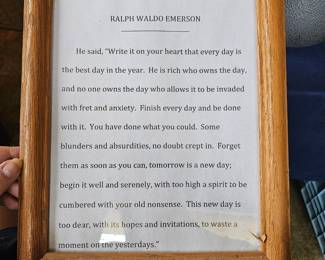 RALPH WALDO EMERSON
He said, "Write it on your heart that every day is
the best day in the year. He is rich who owns the day,
and no one owns the day who allows it to be invaded
with fret and anxiety. Finish every day and be done
with it. You have done what you could. Some
blunders and absurdities, no doubt crept in. Forget
them as soon as you can, tomorrow is a new day;
begin it well and serenely, with too high a spirit to be
cumbered with your old nonsense. This new day is
too dear, with its hopes and invitations, to waste a
moment on the yesterdays."